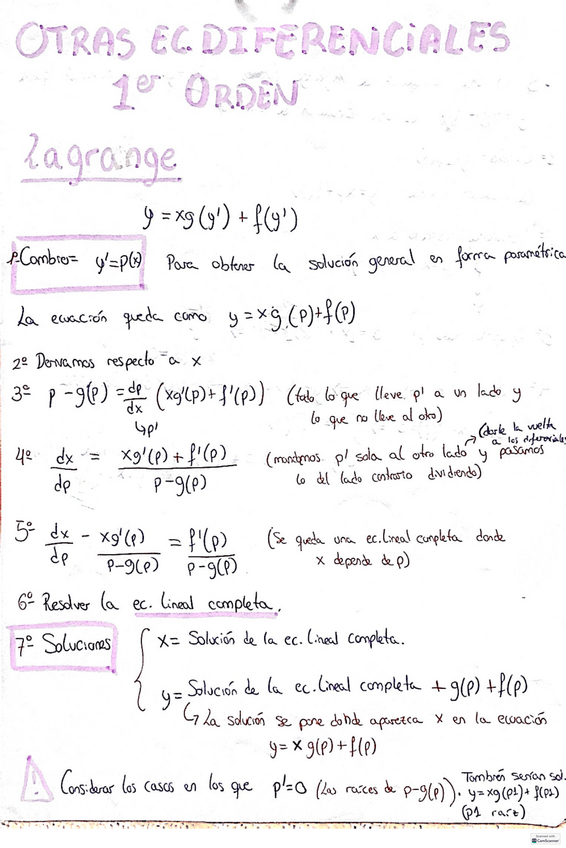 OTRAS EC. DIFERENCIALES
1er ORDEN
Lagrange
y = xg(y') + f(y')
1º Cambio= y'=p(x) Para obtener la solución general en forma paramétrica
La ecuación queda como y = xg(p)+f(p)
2º Derivamos respecto a x
3º p - g(p) = dp/dx (xg'(p)+f'(p)) (todo lo que lleve p' a un lado y
↳p' lo que no lleve al otro)
(darle la vuelta
a los diferenciales)
4º dx/dp = xg'(p)+f'(p) / p-g(p) (mandamos p' sola al otro lado y pasamos
lo del lado contrario dividiendo)
5º dx/dp - xg'(p) / p-g(p) = f'(p) / p-g(p) (Se queda una ec. lineal completa donde
x depende de p)
6º Resolver la ec. lineal completa.
7º Soluciones { x= Solución de la ec. lineal completa.
y= Solución de la ec. lineal completa + g(p) + f(p)
↳ La solución se pone donde aparezca x en la ecuación
y = x g(p) + f(p)
! Considerar los casos en los que p'=0 (Las raíces de p-g(p)). También serían sol.
y=xg(p1)+f(p1)
(p1 raíz)
Scanned with
CamScanner